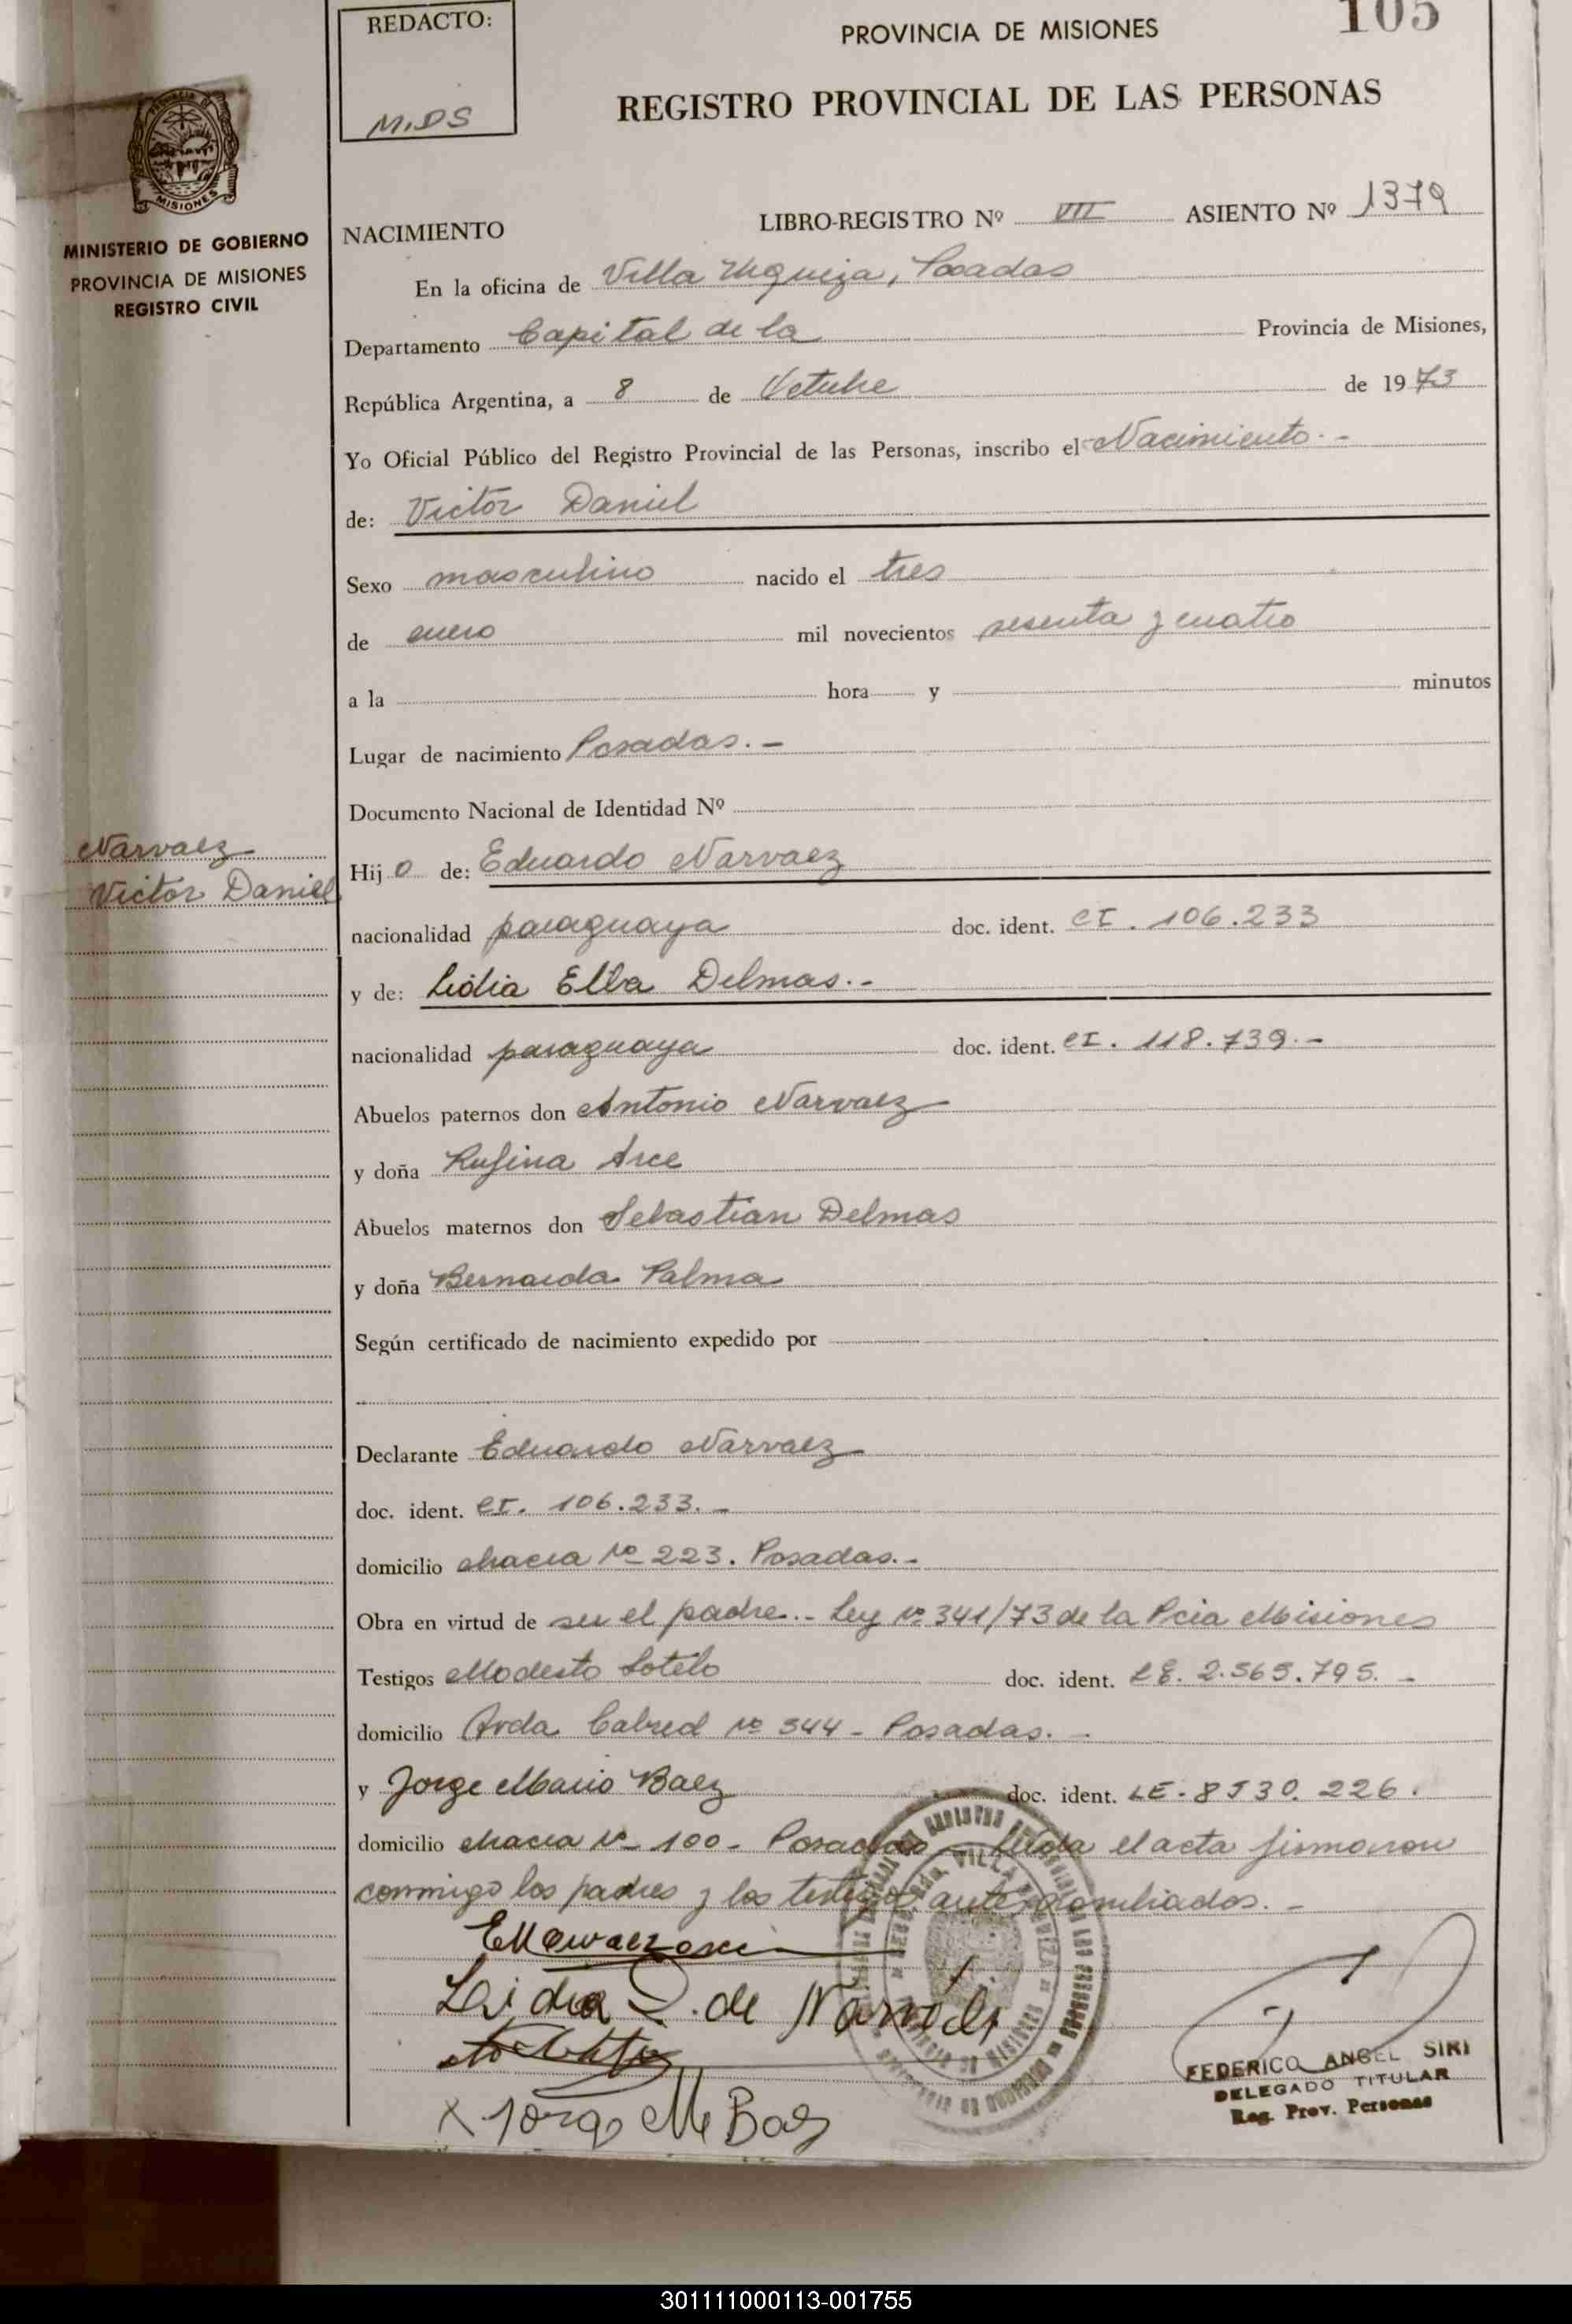 REDACTO:
M.D.S
PROVINCIA DE MISIONES
105
REGISTRO PROVINCIAL DE LAS PERSONAS
MISIONES
MINISTERIO DE GOBIERNO
PROVINCIA DE MISIONES
REGISTRO CIVIL
NACIMIENTO LIBRO-REGISTRO Nº VII ASIENTO Nº 1379
En la oficina de Villa Urquiza, Posadas
Departamento Capital de la Provincia de Misiones,
República Argentina, a 8 de Octubre de 1973
Yo Oficial Público del Registro Provincial de las Personas, inscribo el Nacimiento.-
de: Victor Daniel
Sexo masculino nacido el tres
de enero mil novecientos sesenta y cuatro
a la hora y minutos
Lugar de nacimiento Posadas.-
Documento Nacional de Identidad Nº
Narvaez
Victor Daniel
Hijo de: Eduardo Narvaez
nacionalidad paraguaya doc. ident. CI. 106.233
y de: Lidia Elba Delmas.-
nacionalidad paraguaya doc. ident. CI. 118.739.-
Abuelos paternos don Antonio Narvaez
y doña Rufina Arce
Abuelos maternos don Sebastian Delmas
y doña Bernarda Palma
Según certificado de nacimiento expedido por
Declarante Eduardo Narvaez
doc. ident. CI. 106.233.-
domicilio chacra Nº 223. Posadas.-
Obra en virtud de ser el padre.- Ley Nº 341/73 de la Pcia Misiones
Testigos Modesto Sotelo doc. ident. LE. 2.565.795.-
domicilio Avda Cabred Nº 544 - Posadas.-
y Jorge Mario Baez doc. ident. LE. 8530.226.
domicilio chacra Nº 100 - Posadas - Leída el acta firmaron
conmigo los padres y los testigos
Lidia D. de Narváez
x Jorge M Baez
FEDERICO ANGEL SIRI
DELEGADO TITULAR
Reg. Prov. Personas
301111000113-001755